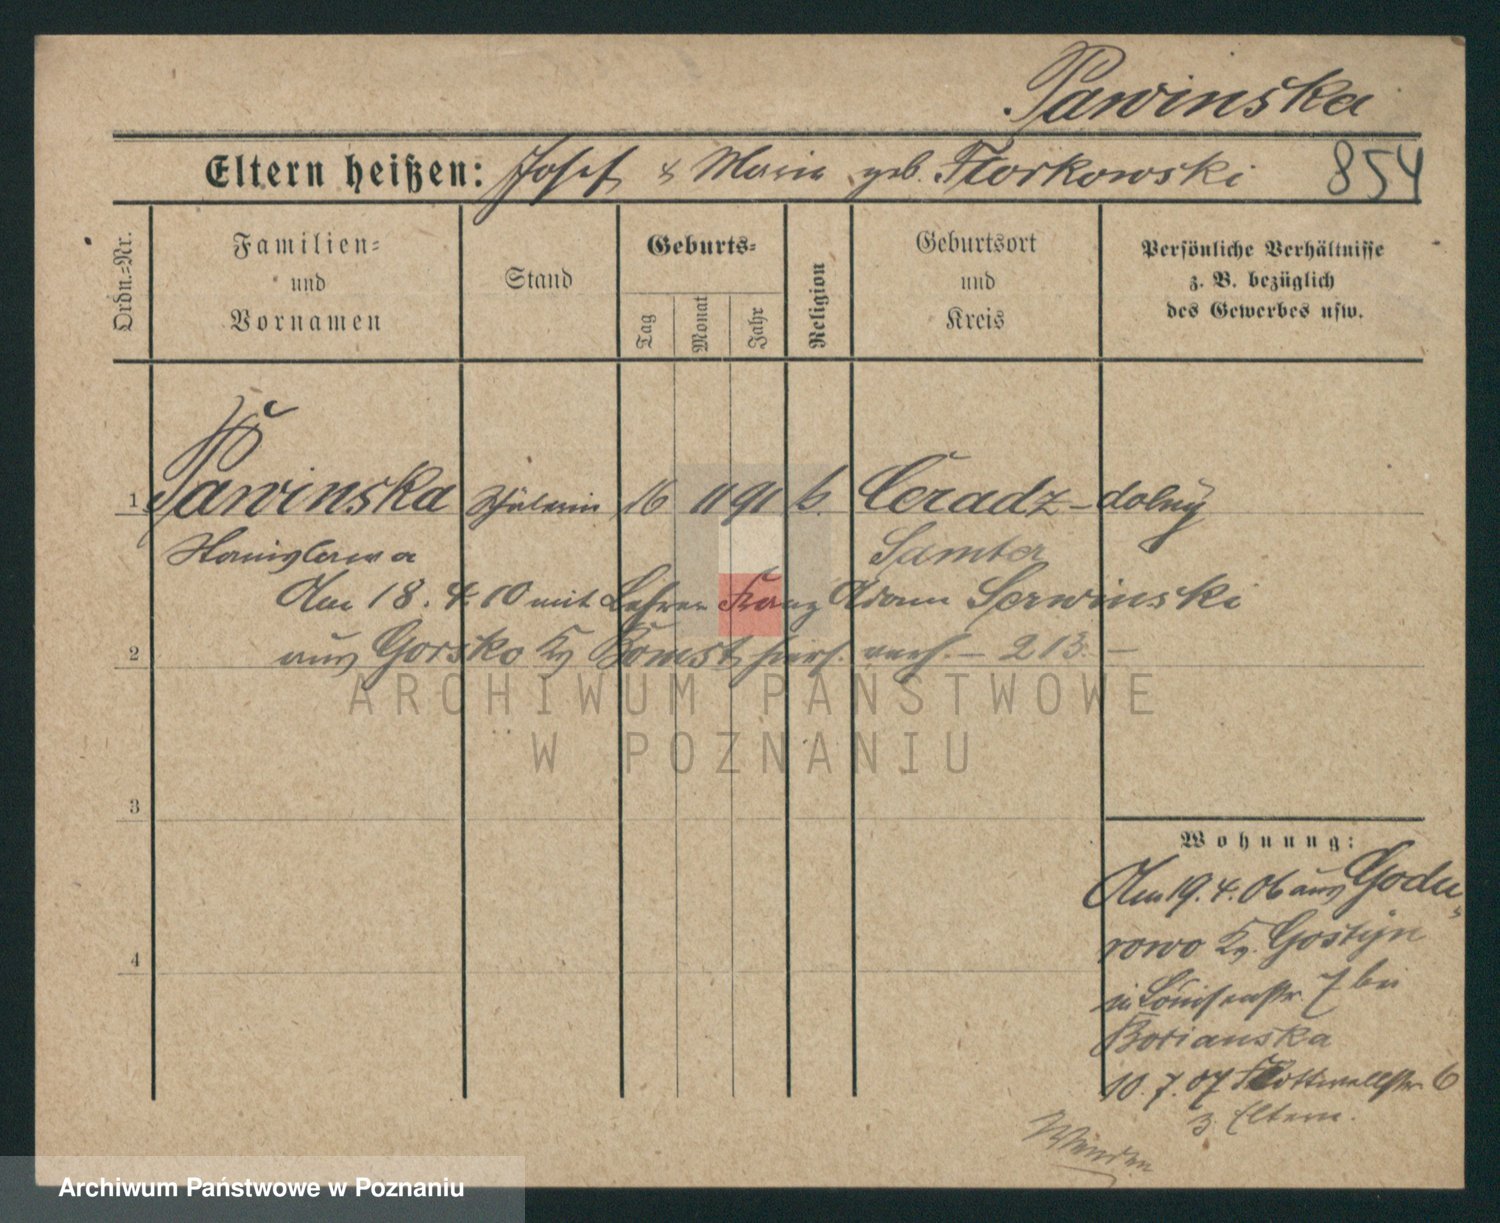 Pawinska
Eltern heißen: Josef & Maria geb. Florkowski 854
Ordn.=Nr.
Familien=
und
Vornamen
Stand
Geburts=
Tag
Monat
Jahr
Religion
Geburtsort
und
Kreis
Persönliche Verhältnisse
z. B. bezüglich
des Gewerbes usw.
1 Pawinska Schülerin 16 11 91 k. Ceradz-dolny
Stanislawa Samter
Am 18. 4. 10 mit Lehrer Franz Adam Serwinski
2 aus Gorsko Kr Bomst hier verh. - 213. -
3
4
Wohnung:
Am 19. 4. 06 aus Godu-
rowo Kr. Gostyn
in Louisenstr. 7 bei
Borianska
10. 7. 07 Flottwellstr. 6
z. Eltern.
Wenden
ARCHIWUM PAŃSTWOWE
W POZNANIU
Archiwum Państwowe w Poznaniu